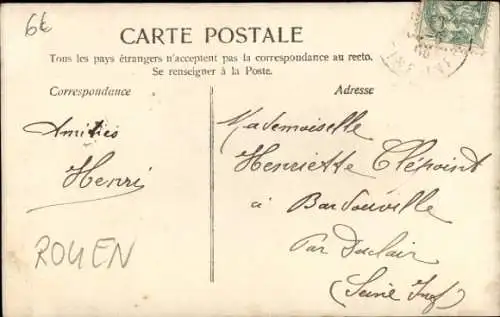 6€
CARTE POSTALE
Tous les pays étrangers n'acceptent pas la correspondance au recto.
Se renseigner à la Poste.
Correspondance
Adresse
Amitiés
Henri
ROUEN
Mademoiselle
Henriette Clépoint
à Bardouville
Par Duclair
(Seine Inf)